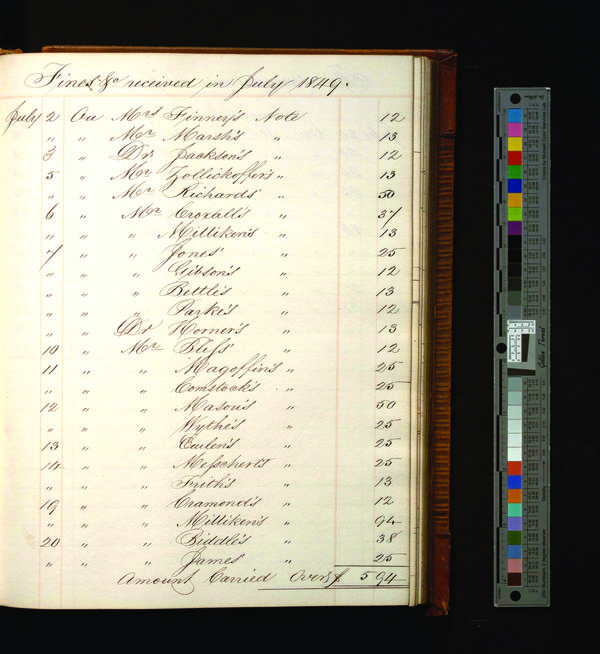 Fines &c received in July 1849.
July 2 On Mrs Finney's Note 12
" " Mr Marsh's " 13
3 " Dr Jackson's " 12
5 " Mr Zollickoffer's " 13
" " Mr Richards' " 50
6 " Mr Croxall's " 37
" " " Milliken's " 13
7 " " Jones' " 25
" " " Gibson's " 12
" " " Bettle's " 13
" " " Parke's " 12
" " Dr Horner's " 13
10 " Mr Bliss' " 12
11 " " Magoffin's " 25
" " " Comstock's " 25
12 " " Mason's " 50
" " " Wythe's " 25
13 " " Eulen's " 25
14 " " Messchert's " 25
" " " Frith's " 13
19 " " Cramond's " 12
" " " Milliken's " 94
20 " " Biddle's " 38
" " " James' " 25
Amount Carried Over $ 5 94